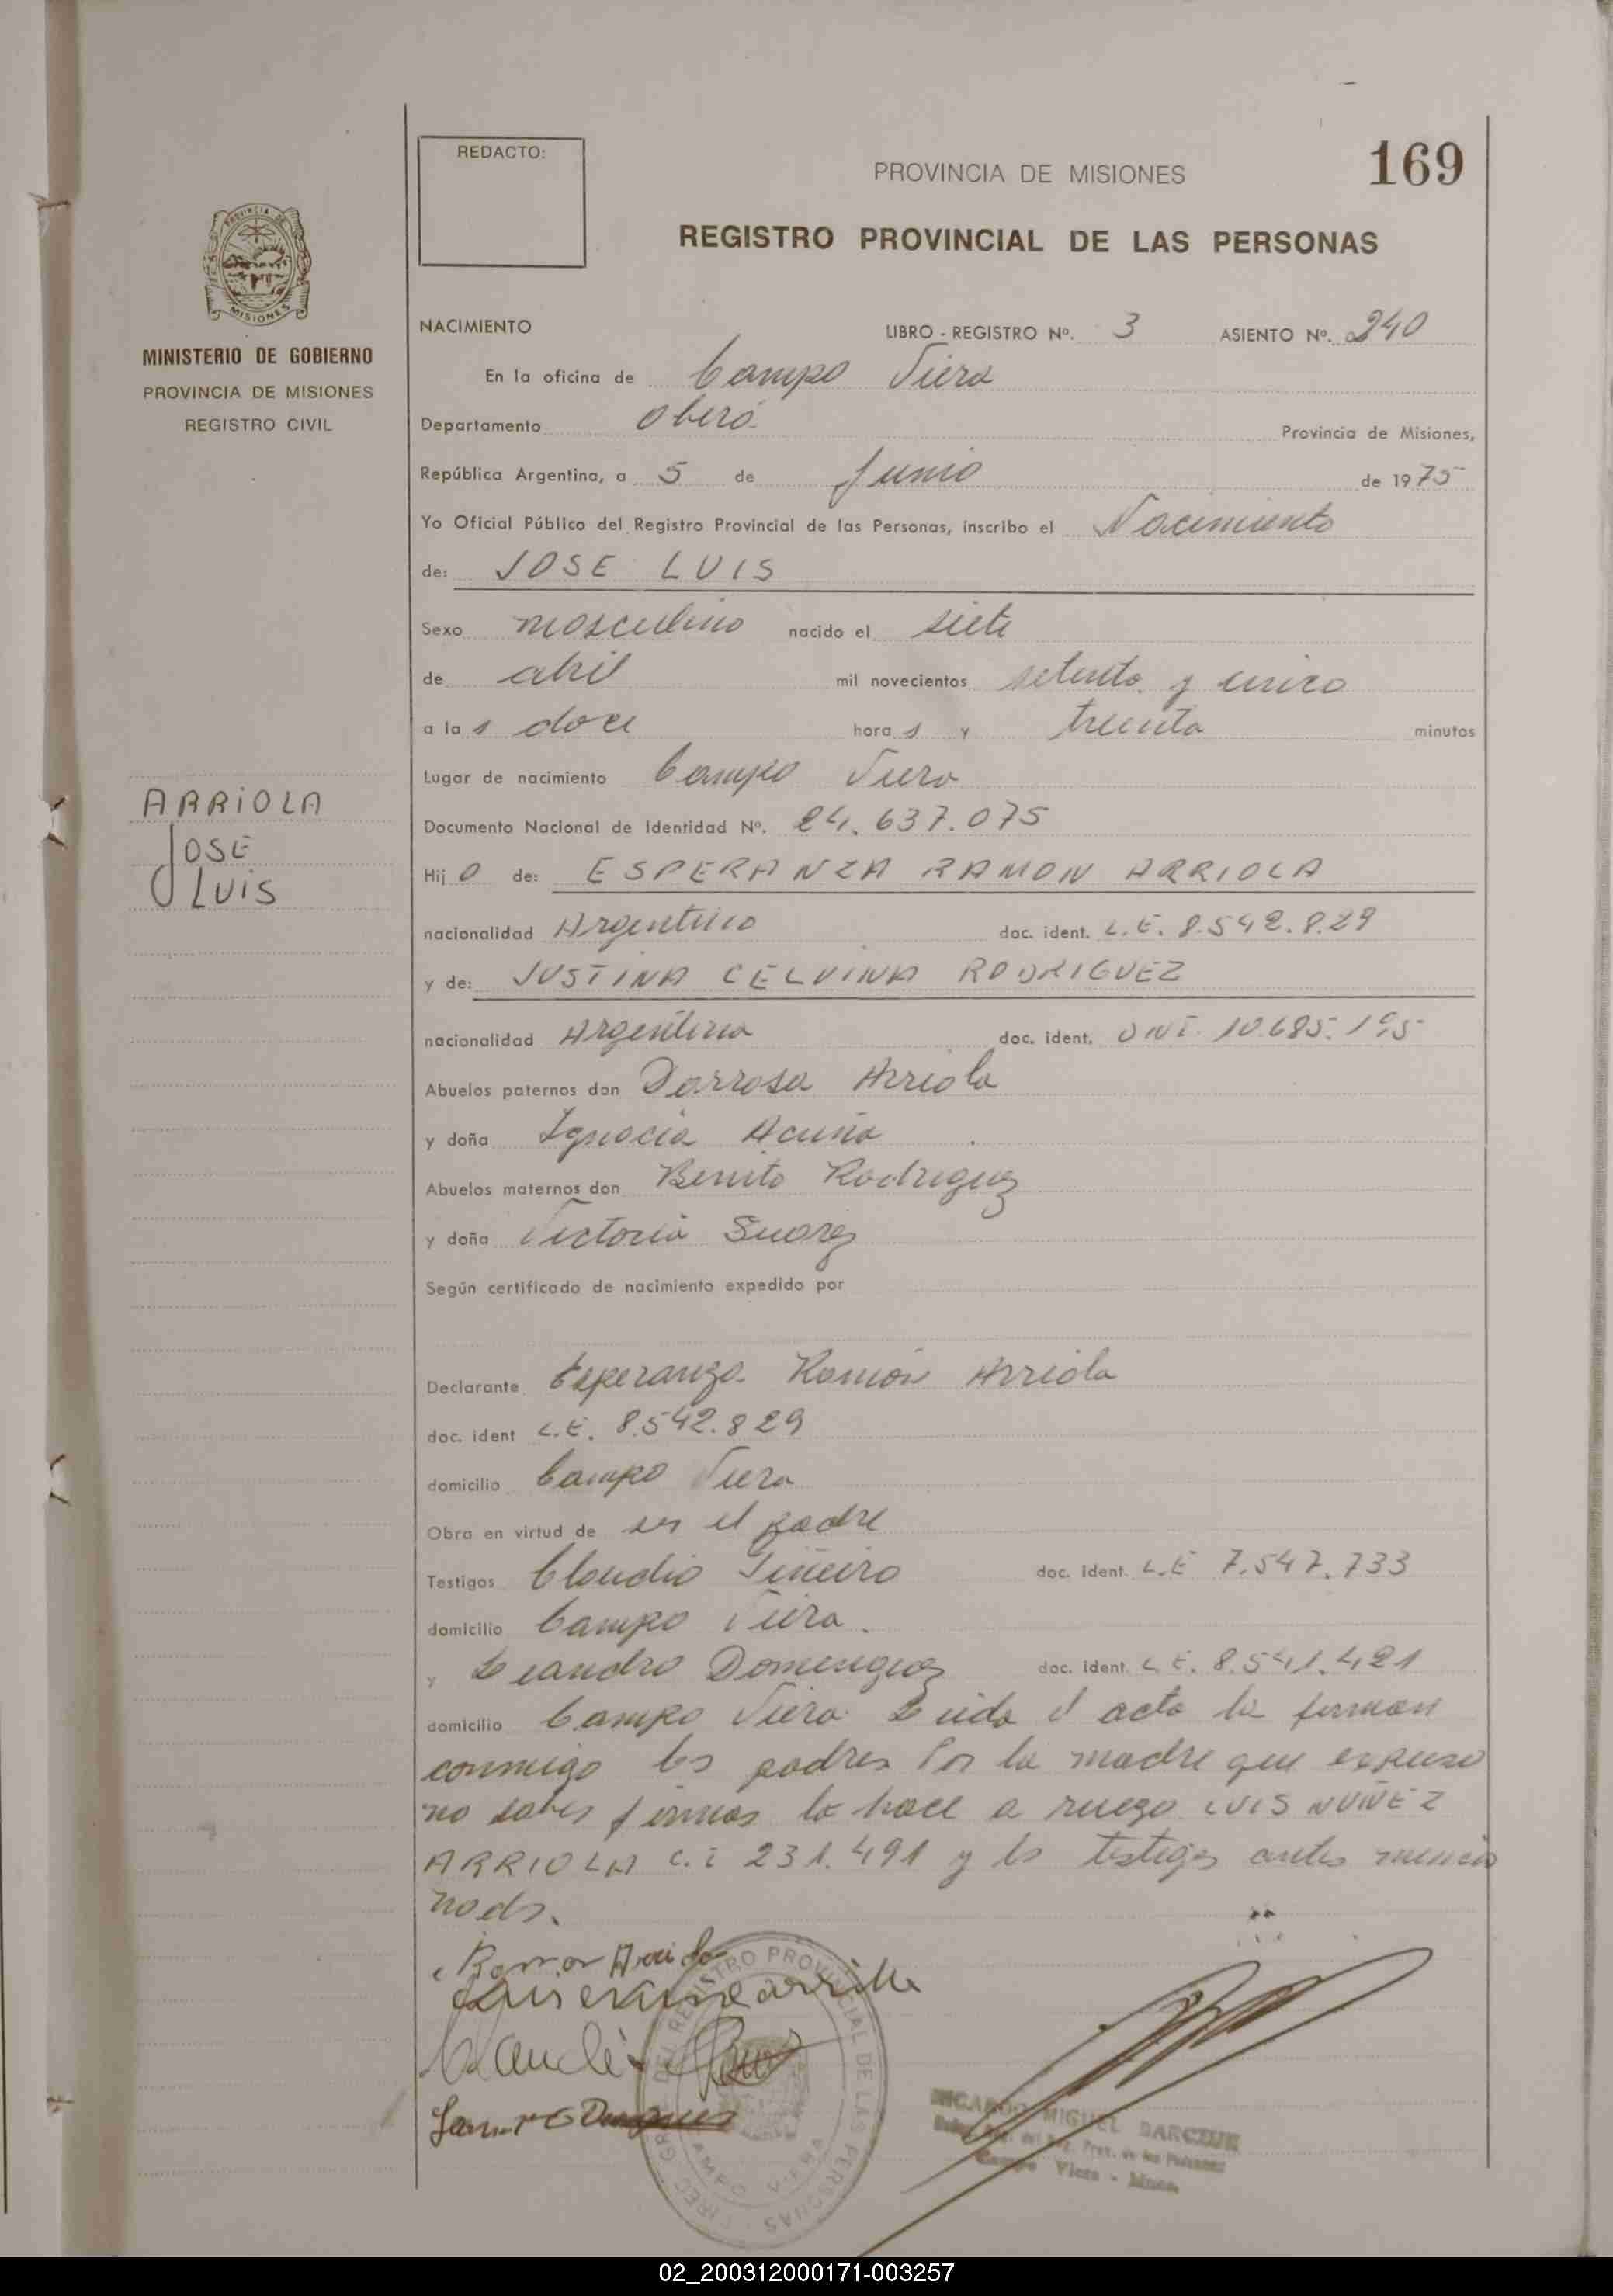 REDACTO:
PROVINCIA DE MISIONES
169
REGISTRO PROVINCIAL DE LAS PERSONAS
PROVINCIA DE
MISIONES
MINISTERIO DE GOBIERNO
PROVINCIA DE MISIONES
REGISTRO CIVIL
ARRIOLA
JOSE
LUIS
NACIMIENTO LIBRO - REGISTRO Nº. 3 ASIENTO Nº. 240
En la oficina de Campo Viera
Departamento Oberá Provincia de Misiones,
República Argentina, a 5 de Junio de 1975
Yo Oficial Público del Registro Provincial de las Personas, inscribo el Nacimiento
de: JOSE LUIS
Sexo masculino nacido el siete
de abril mil novecientos setenta y cinco
a las doce horas y treinta minutos
Lugar de nacimiento Campo Viera
Documento Nacional de Identidad Nº. 24.637.075
Hijo de: ESPERANZA RAMON ARRIOLA
nacionalidad Argentino doc. ident. L.E. 8.542.829
y de: JUSTINA CELVINA RODRIGUEZ
nacionalidad Argentina doc. ident. DNI. 10.685.195
Abuelos paternos don Darrosa Arriola
y doña Ignacia Acuña
Abuelos maternos don Benito Rodriguez
y doña Victoria Suarez
Según certificado de nacimiento expedido por
Declarante Esperanza Ramón Arriola
doc. ident L.E. 8.542.829
domicilio Campo Viera
Obra en virtud de ser el padre
Testigos Claudio doc. ident. L.E 7.547.733
domicilio Campo Viera.
y Leandro Dominguez doc. ident. L.E. 8.541.421
domicilio Campo Viera Leida el acta la firman
conmigo los padres Por la madre que expuso
no saber firmar lo hace a ruego LUIS NUÑEZ
ARRIOLA C.I 231.491 y los testigos antes mencio
nados.
Ramon Arriola
REGISTRO PROVINCIAL DE LAS PERSONAS
CAMPO VIERA
RICARDO MIGUEL
Campo Viera - Mnes.
02_200312000171-003257